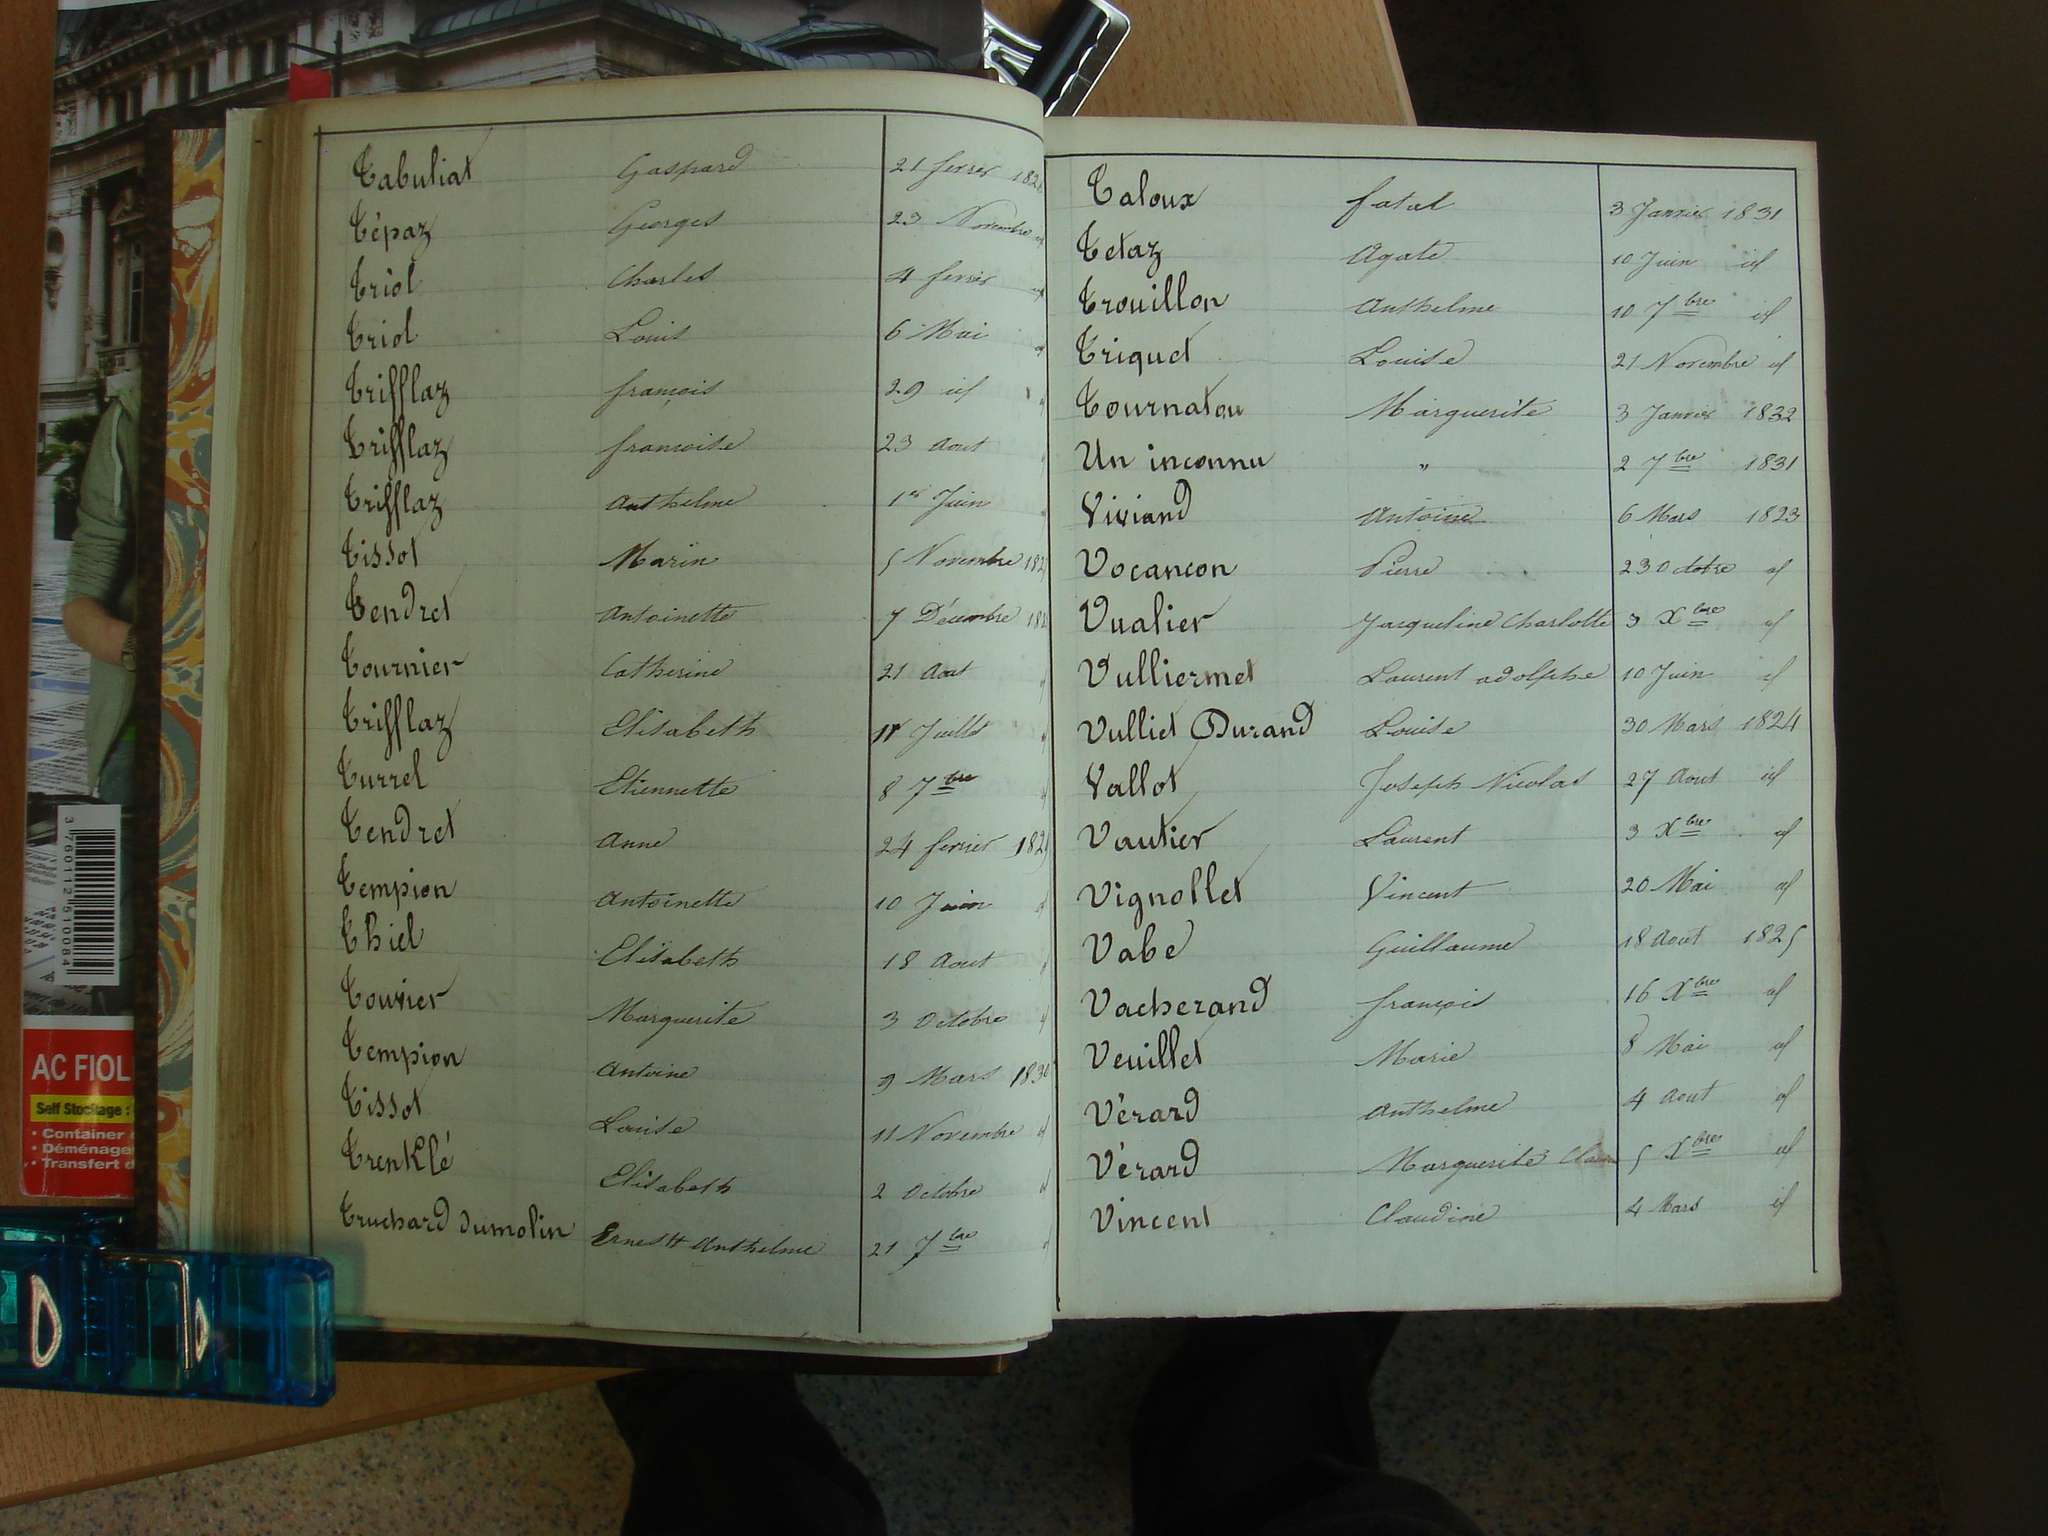 Tabuliat Gaspard 21 fevrier
Tépaz Georges 23 Novembre id
Triol Charles 4 fevrier id
Triol Louis 6 Mai id
Trifflaz françois 29 id
Trifflaz francoise 23 Aout
Trifflaz Anthelme 1er Juin
Tissot Marin 5 Novembre
Tendret Antoinette 7 Décembre
Tournier Catherine 21 Aout
Trifflaz Elisabeth Juillet
Turrel Etiennette 8 7bre
Tendret Anne 24 fevrier
Tempion Antoinette 10 Juin
Thiel Elisabeth 18 Aout
Touvier Marguerite 3 Octobre
Tempion Antoine 9 Mars 1830
Tissot Louise 11 Novembre id
Trenklé Elisabeth 2 Octobre id
Truchard dumolin Ernest Anthelme 21 7bre
Taloux fatal 3 Janvier 1831
Tetaz Agate 10 Juin id
Trouillon Anthelme 10 7bre id
Triquet Louise 21 Novembre id
Tournatou Marguerite 3 Janvier 1832
Un inconnu " 2 7bre 1831
Viviand Antoine 6 Mars 1823
Vocancon Pierre 23 Octobre id
Vualier Jacqueline Charlotte 3 Xbre id
Vulliermet Laurent adolphe 10 Juin id
Vulliet Durand Louise 30 Mars 1824
Vallot Joseph Nicolas 27 Aout id
Vautier Laurent 3 Xbre id
Vignollet Vincent 20 Mai id
Vabe Guillaume 18 Aout 1825
Vacherand françois 16 Xbre id
Veuillet Marie 8 Mai id
Vérard Anthelme 4 Aout id
Vérard Marguerite 5 Xbre id
Vincent Claudine 4 Mars id
3 760112 510084
AC FIOL
Self Stockage :
• Container
• Déménage
• Transfert d